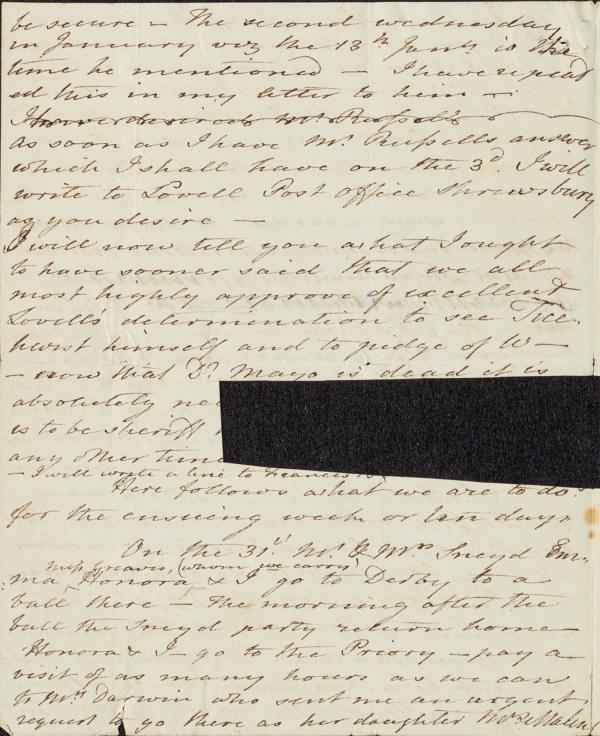 be secure – The second wednesday
in January viz the 13th Jany is the
time he mentioned – I have repeat
ed this in my letter to him –
as soon as I have Mr Russells answer
which I shall have on the 3d. I will
write to Lovell Post office Shrewsbury
as you desire –
I will now tell you what I ought
to have sooner said that we all
most highly approve of excellent
Lovell's determination to see Tice-
hurst himself and to judge of W–
– now that Dr. Mayo is dead it is
absolutely ne
is to be sheriff
any other time
– I will write a line to Frances
Here follows what we are to do
for the ensuing week or ten days
On the 31st. Mr. & Mrs Sneyd Em-
Miss Greaves, (whom we carry)
ma, Honora & I go to Derby to a
ball there – The morning after the
ball the Sneyd party return home –
Honora & I – go to the Priory – pay a
visit of as many hours as we can
to Mrs Darwin who sent me an urgent
request to go there as her daughter Mrs